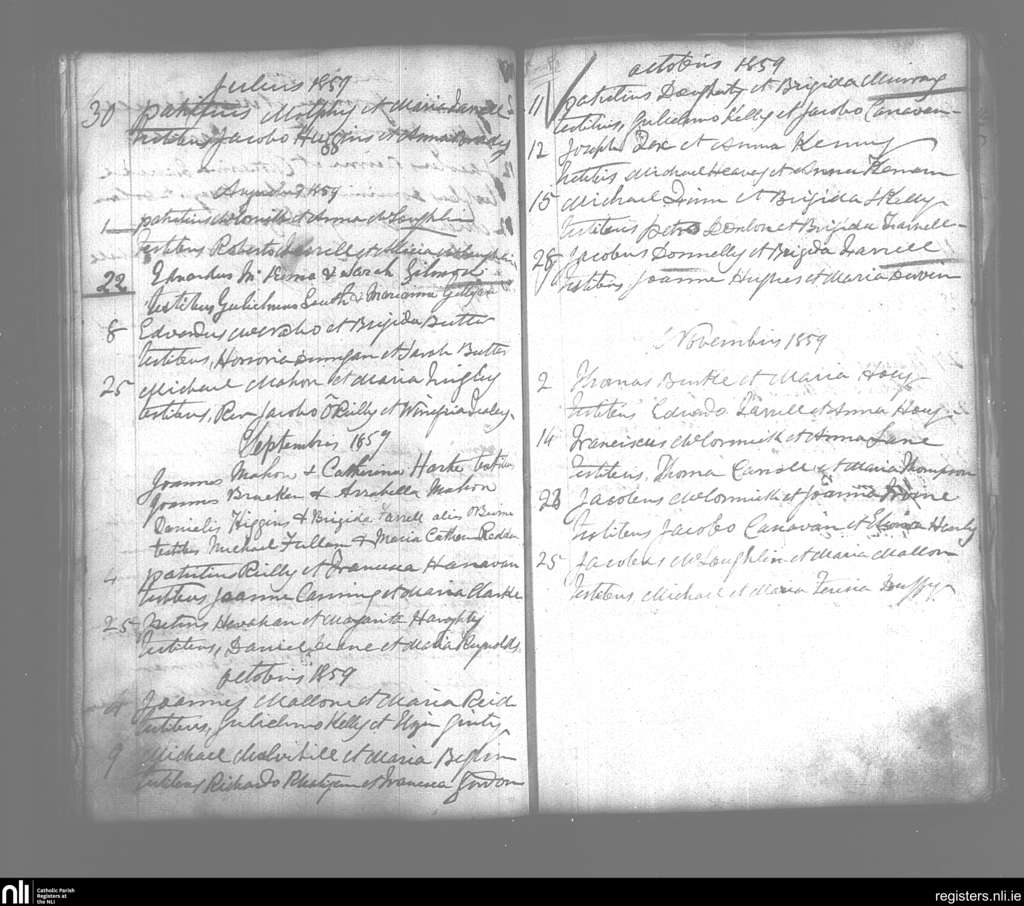 Julius 1859
30 Patritius Molphy et Maria Farrell
testibus Jacobo Higgins et Anna Brady
Augustus 1859
1 patritius et Anna McLoughlin
testibus Roberto Farrell et Maria McLoughlin
22 Eduardus Mc Kenna & Sarah Gilmore
testibus Gulielmus South & Marianna Gilligan
8 Edvardus et Brigida Butter
testibus, Honoria Dunigan et Sarah Butter
25 Michael Mahon et Maria
testibus, Rev Jacobo O Reilly et Winefrida Daley
Septembris 1859
Joannes Mahon & Catherina Harte
Joannes Bracken & Arrabella Mahon
Danielis Higgins & Brigida Farrell alis O Beirne
testibus Michael Fullam & Maria Cather Reddan
4 patritius Reilly et Francisca Hanavan
testibus Joanne Canning et Maria Clarke
25 Petrus et Margarita Haughty
testibus, Daniel Leane et Maria Reynolds
octobris 1859
4 Joannes Mallone et Maria Reid
testibus, Gulielmo Kelly et Eliza Ginty
9 Michael Mulvihill et Maria Beglin
testibus Richardo et Francisca Gordon
octobris 1859
11 patritius Dougherty et Brigida Murray
testibus, Gulielmo Kelly et Jacobo Canavan
12 Joseph et Anna Kenny
testibus Michael Heavey et Anna
15 Michael Dunn et Brigida Kelly
testibus petro et Brigida Farrell
28 Jacobus Donnelly et Brigida Farrell
testibus Joanne Hughes et Maria
Novembris 1859
2 Thomas Burke et Maria Hoey
testibus Edvardo Farrell et Anna Hoey
14 Franciscus McCormick et Anna Lane
testibus, Thoma Carroll et Maria Thompson
23 Jacobus McCormick et Joanna
testibus Jacobo Canavan et
25 Jacobus McLoughlin et Maria Mallon
testibus Michael et Maria Teresa Duffy
nli Catholic Parish
Registers at
the NLI
registers.nli.ie